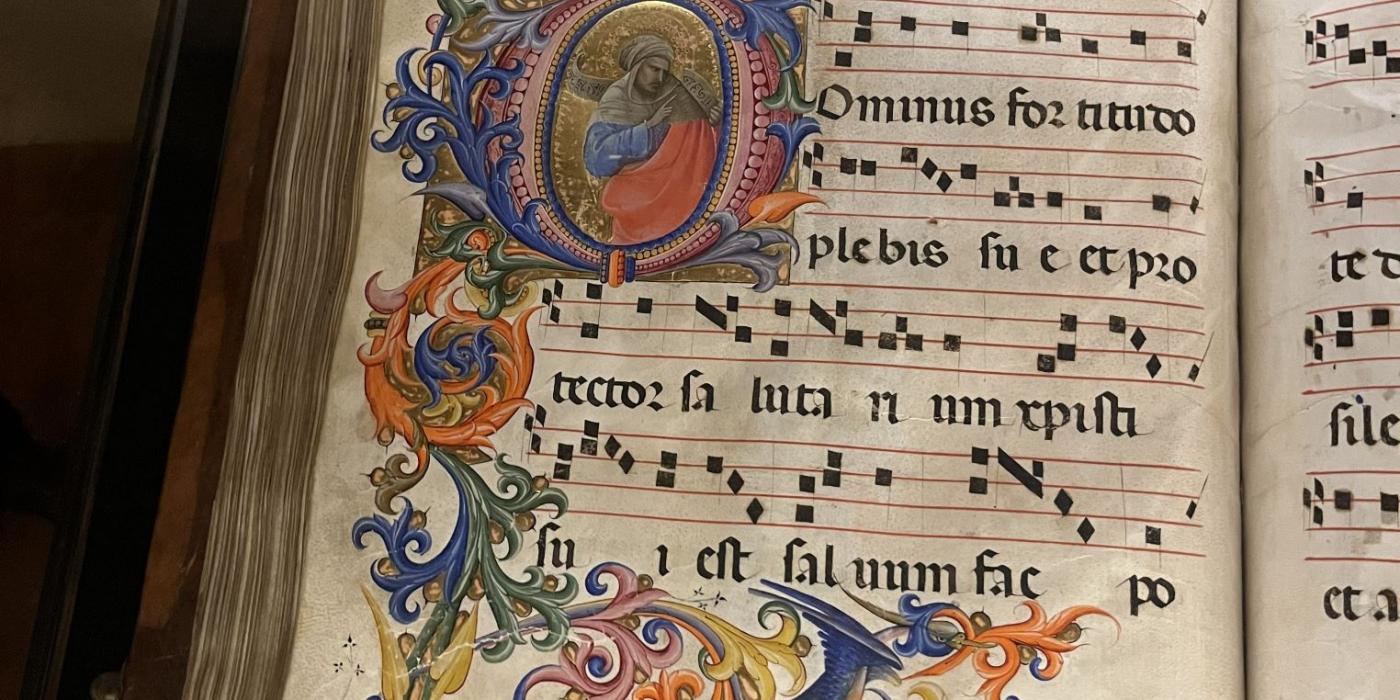 Ominus for titudo
plebis su e et pro
tector sa luta ri um xpisti
su i est saluum fac po
te
sile
et a